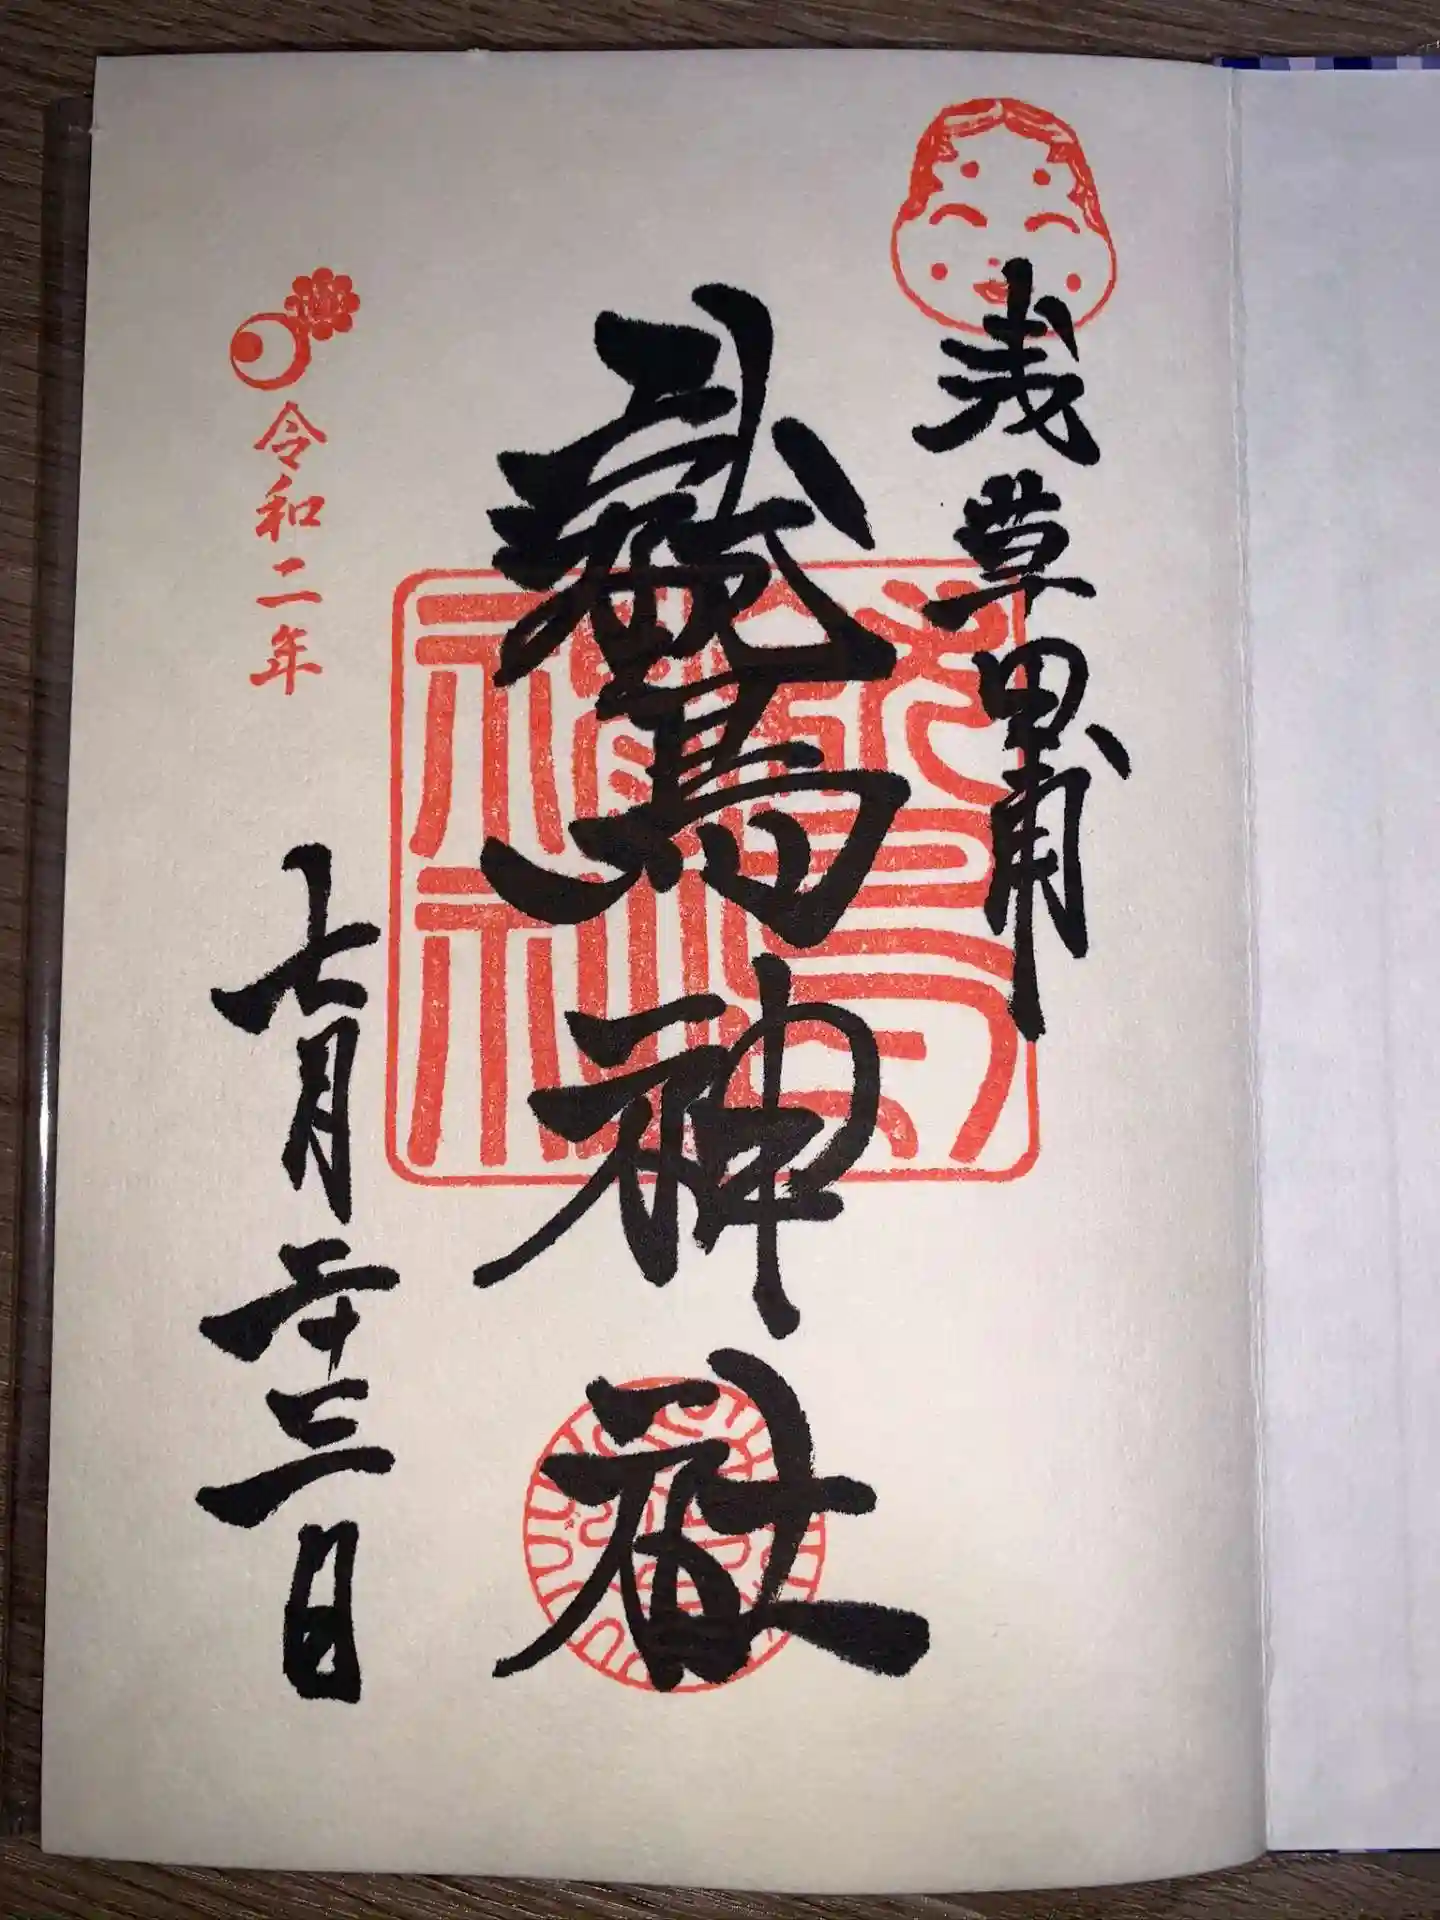 浅草田甫
鷲神社
令和二年
七月二十三日